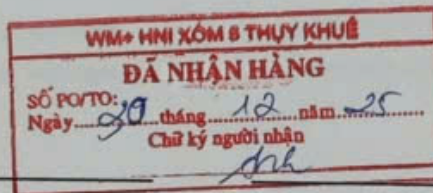 WM+ HNI XÓM 8 THỤY KHUÊ
ĐÃ NHẬN HÀNG
SỐ PO/TO:
Ngày 20 tháng 12 năm 25
Chữ ký người nhận